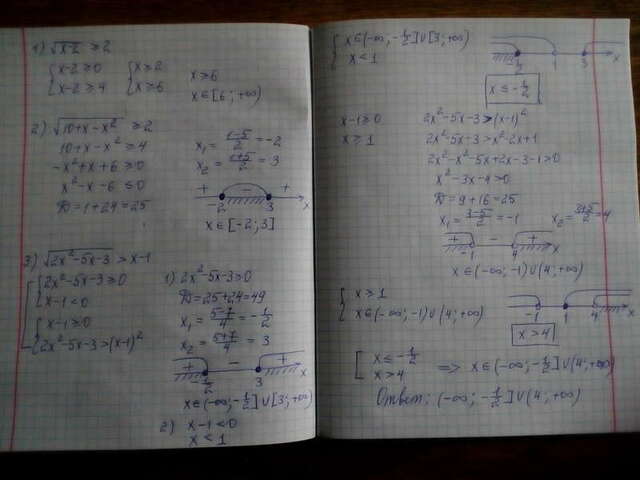 1) √x-2 ≥ 2
{ x-2 ≥ 0 { x ≥ 2 x ≥ 6
x-2 ≥ 4 x ≥ 6 x ∈ [6; +∞)
2) √10+x-x² ≥ 2
10+x-x² ≥ 4
-x²+x+6 ≥ 0
x²-x-6 ≤ 0
D = 1+24 = 25
x₁ = (1-5)/2 = -2
x₂ = (1+5)/2 = 3
+ - +
-2 3 x
x ∈ [-2; 3]
3) √2x²-5x-3 > x-1
{ 2x²-5x-3 ≥ 0
x-1 < 0
{ x-1 ≥ 0
2x²-5x-3 > (x-1)²
1) 2x²-5x-3 ≥ 0
D = 25+24 = 49
x₁ = (5-7)/4 = -1/2
x₂ = (5+7)/4 = 3
+ - +
1/2 3 x
x ∈ (-∞; -1/2] ∪ [3; +∞)
2) x-1 < 0
x < 1
{ x ∈ (-∞, -1/2] ∪ [3; +∞)
x < 1
1/2 1 3 x
x ≤ -1/2
x-1 ≥ 0
x ≥ 1
2x²-5x-3 > (x-1)²
2x²-5x-3 > x²-2x+1
2x²-x²-5x+2x-3-1 > 0
x²-3x-4 > 0
D = 9+16 = 25
x₁ = (3-5)/2 = -1 x₂ = (3+5)/2 = 4
+ - +
-1 4 x
x ∈ (-∞; -1) ∪ (4; +∞)
{ x ≥ 1
x ∈ (-∞; -1) ∪ (4; +∞)
-1 1 4 x
x > 4
[ x ≤ -1/2
x > 4 => x ∈ (-∞; -1/2] ∪ (4; +∞)
Ответ: (-∞; -1/2] ∪ (4; +∞)